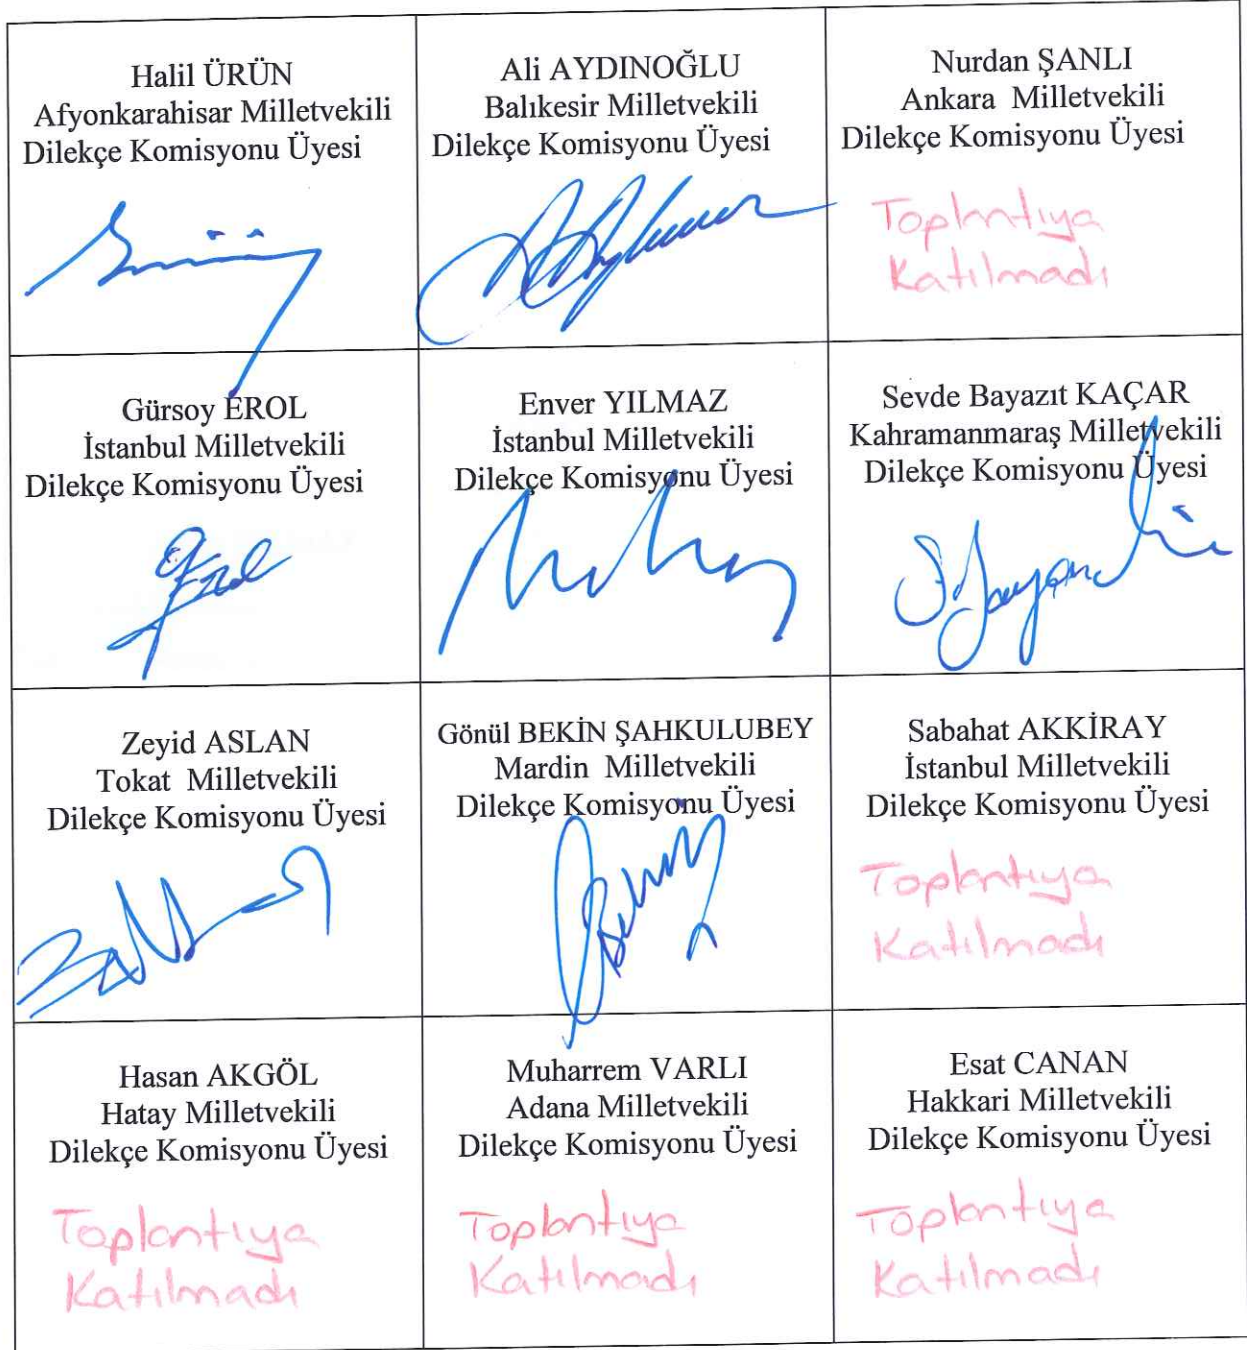 Halil ÜRÜN
Afyonkarahisar Milletvekili
Dilekçe Komisyonu Üyesi
Ali AYDINOĞLU
Balıkesir Milletvekili
Dilekçe Komisyonu Üyesi
Nurdan ŞANLI
Ankara Milletvekili
Dilekçe Komisyonu Üyesi
Toplantıya
Katılmadı
Gürsoy EROL
İstanbul Milletvekili
Dilekçe Komisyonu Üyesi
Enver YILMAZ
İstanbul Milletvekili
Dilekçe Komisyonu Üyesi
Sevde Bayazıt KAÇAR
Kahramanmaraş Milletvekili
Dilekçe Komisyonu Üyesi
Zeyid ASLAN
Tokat Milletvekili
Dilekçe Komisyonu Üyesi
Gönül BEKİN ŞAHKULUBEY
Mardin Milletvekili
Dilekçe Komisyonu Üyesi
Sabahat AKKİRAY
İstanbul Milletvekili
Dilekçe Komisyonu Üyesi
Toplantıya
Katılmadı
Hasan AKGÖL
Hatay Milletvekili
Dilekçe Komisyonu Üyesi
Toplantıya
Katılmadı
Muharrem VARLI
Adana Milletvekili
Dilekçe Komisyonu Üyesi
Toplantıya
Katılmadı
Esat CANAN
Hakkari Milletvekili
Dilekçe Komisyonu Üyesi
Toplantıya
Katılmadı